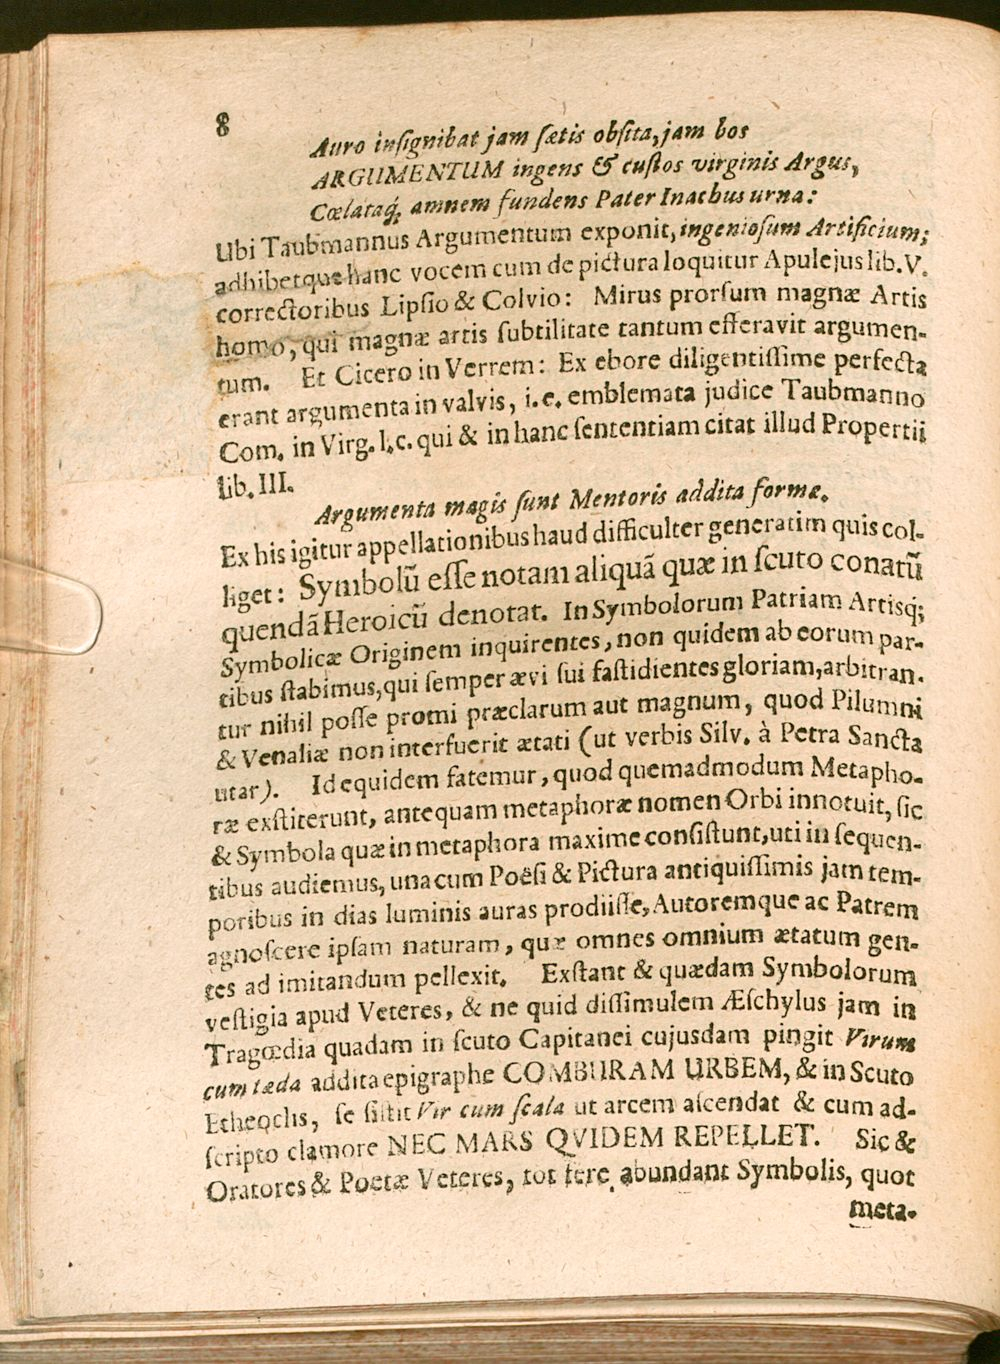 8
Auro inſignibat jam ſætis obſita, jam bos
ARGUMENTUM ingens & cuſtos virginis Argus,
Cœlataq́; amnem fundens Pater Inachus urna:
Ubi Taubmannus Argumentum exponit, ingenioſum Artificium;
adhibetque hanc vocem cum de pictura loquitur Apulejus lib. V.
correctoribus Lipſio & Colvio: Mirus prorſum magnæ Artis
homo, qui magnæ artis ſubtilitate tantum efferavit argumen-
tum. Et Cicero in Verrem: Ex ebore diligentiſſime perfecta
erant argumenta in valvis, i.e. emblemata judice Taubmanno
Com. in Virg. l. c. qui & in hanc ſententiam citat illud Propertii
lib. III.
Argumenta magis ſunt Mentoris addita formæ.
Ex his igitur appellationibus haud difficulter generatim quis col-
liget: Symbolũ eſſe notam aliquã quæ in ſcuto conatũ
quendã Heroicũ denotat. In Symbolorum Patriam Artisq́;
Symbolicæ Originem inquirentes, non quidem ab eorum par-
tibus ſtabimus, qui ſemper ævi ſui faſtidientes gloriam, arbitran-
tur nihil poſſe promi præclarum aut magnum, quod Pilumni
& Venaliæ non interfuerit ætati (ut verbis Silv. à Petra Sancta
utar). Id equidem fatemur, quod quemadmodum Metapho-
ræ exſtiterunt, antequam metaphoræ nomen Orbi innotuit, ſic
& Symbola quæ in metaphora maxime conſiſtunt, uti in ſequen-
tibus audiemus, una cum Poëſi & Pictura antiquiſſimis jam tem-
poribus in dias luminis auras prodiiſſe, Autoremque ac Patrem
agnoſcere ipſam naturam, quæ omnes omnium ætatum gen-
tes ad imitandum pellexit. Exſtant & quædam Symbolorum
veſtigia apud Veteres, & ne quid diſſimulem Æſchylus jam in
Tragœdia quadam in ſcuto Capitanei cujusdam pingit Virum
cum tæda addita epigraphe COMBURAM URBEM, & in Scuto
Etheoclis, ſe ſiſtit Vir cum ſcala ut arcem aſcendat & cum ad-
ſcripto clamore NEC MARS QVIDEM REPELLET. Sic &
Oratores & Poetæ Veteres, tot fere abundant Symbolis, quot
meta-